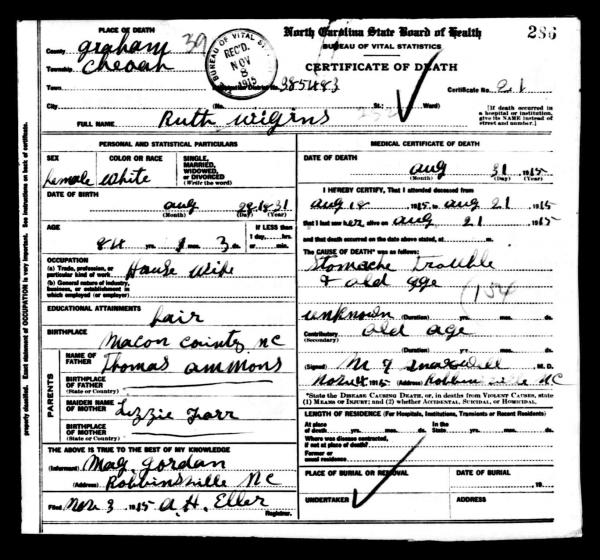 North Carolina State Board of Health
BUREAU OF VITAL STATISTICS
CERTIFICATE OF DEATH
286
PLACE OF DEATH
County graham 39
Township cheoah
Town
BUREAU OF VITAL
REC'D.
NOV
8
1915
385483
Certificate No. 21
City (No. St.; Ward)
[If death occurred in a hospital or institution, give its NAME instead of street and number.]
FULL NAME Ruth Wigins
PERSONAL AND STATISTICAL PARTICULARS
SEX female
COLOR OR RACE white
SINGLE, MARRIED, WIDOWED, or DIVORCED (Write the word)
DATE OF BIRTH aug 28 1831
(Month) (Day) (Year)
AGE 84 yrs. mos. 3 ds.
If LESS than 1 day, hrs. or min.
OCCUPATION
(a) Trade, profession, or particular kind of work House wife
(b) General nature of industry, business, or establishment in which employed (or employer)
EDUCATIONAL ATTAINMENTS fair
BIRTHPLACE Macon county nc
PARENTS
NAME OF FATHER Thomas ammons
BIRTHPLACE OF FATHER (State or Country)
MAIDEN NAME OF MOTHER Lizzie
BIRTHPLACE OF MOTHER (State or Country)
THE ABOVE IS TRUE TO THE BEST OF MY KNOWLEDGE
(Informant) Mag. Gordan
(Address) Robbinsville NC
Filed Nov 3 1915 A. H. Eller
Registrar.
MEDICAL CERTIFICATE OF DEATH
DATE OF DEATH
aug 31 1915
(Month) (Day) (Year)
I HEREBY CERTIFY, That I attended deceased from
aug 18 1915 to aug 21 1915
that I last saw her alive on aug 21 1915
and that death occurred on the date above stated, at m.
The CAUSE OF DEATH* was as follows:
Stomache trouble
& old age
154
unknown (Duration) yrs. mos. ds.
Contributory old age
(Secondary)
(Duration) yrs. mos. ds.
(Signed) M. D.
1915 (Address) NC
*State the DISEASE CAUSING DEATH, or, in deaths from VIOLENT CAUSES, state (1) MEANS OF INJURY; and (2) whether ACCIDENTAL, SUICIDAL, or HOMICIDAL.
LENGTH OF RESIDENCE (For Hospitals, Institutions, Transients or Recent Residents)
At place of death yrs. mos. ds. In the State yrs. mos. ds.
Where was disease contracted, if not at place of death?
Former or usual residence
PLACE OF BURIAL OR REMOVAL
DATE OF BURIAL
19
UNDERTAKER
ADDRESS
properly classified. Exact statement of OCCUPATION is very important. See instructions on back of certificate.